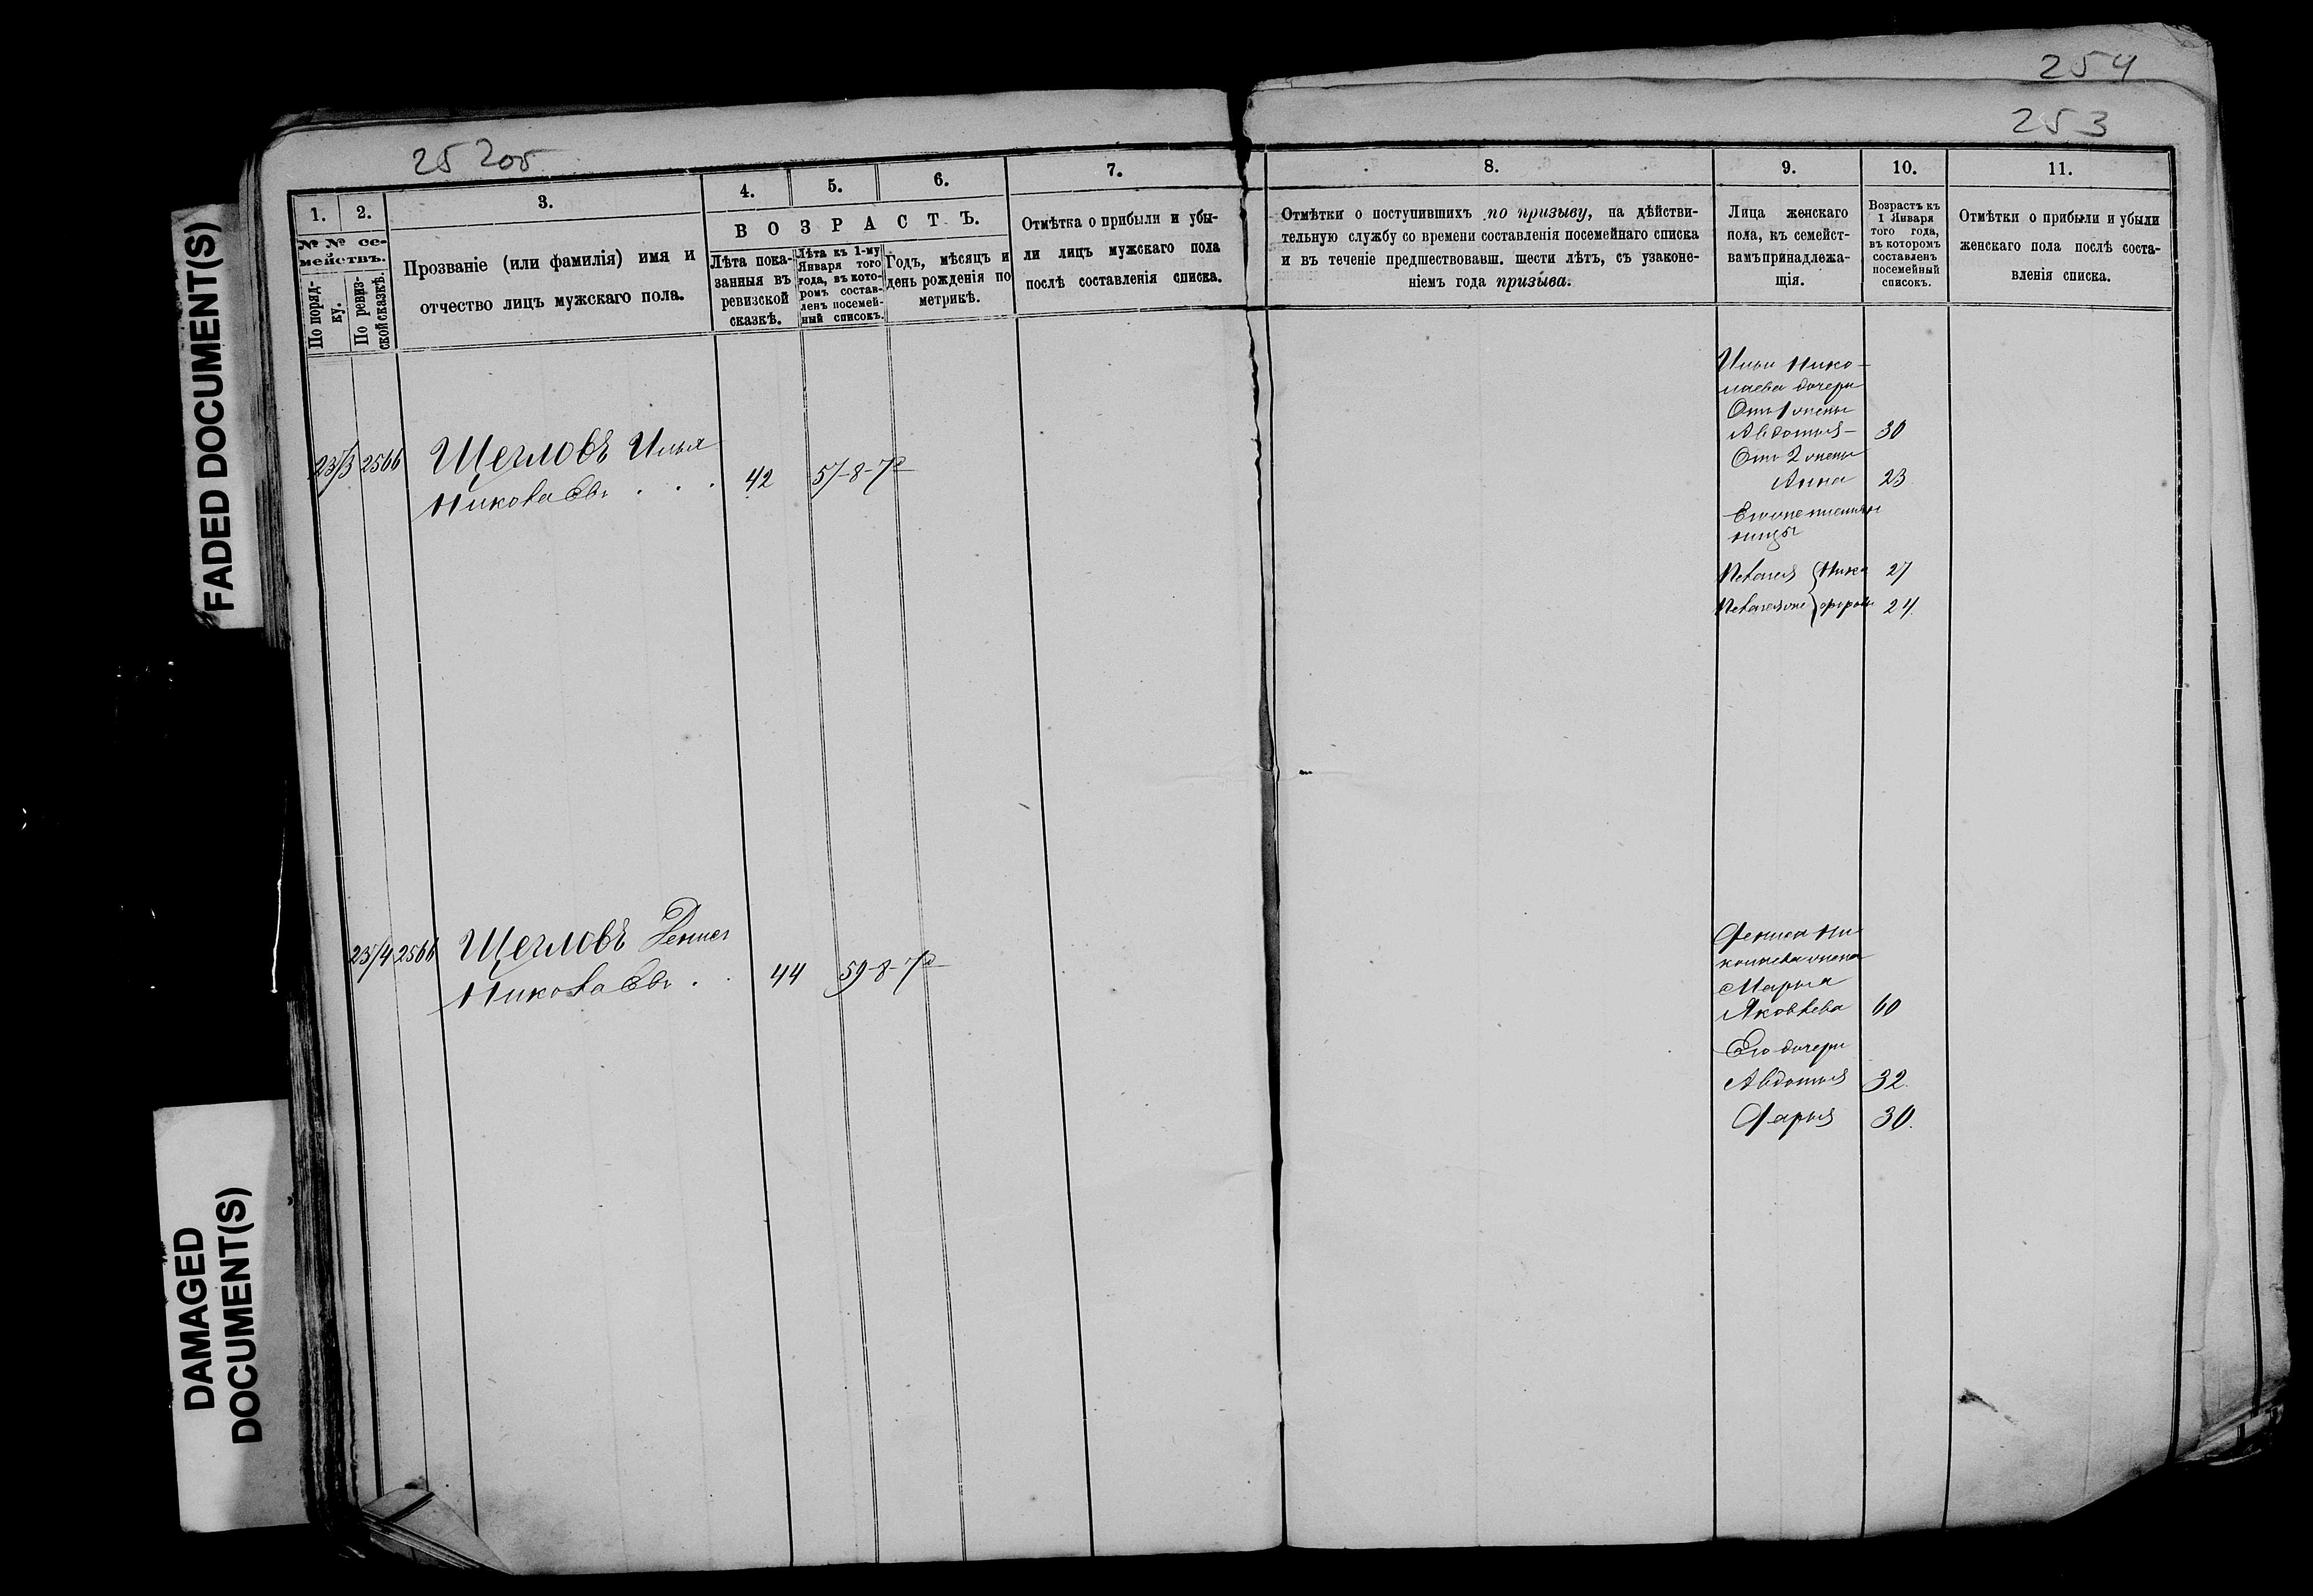 254
253
25 205
FADED DOCUMENT(S)
DAMAGED
DOCUMENT(S)
1.
2.
3.
4.
5.
6.
7.
8.
9.
10.
11.
№ № се-
мействъ.
По поряд-
ку.
По ревиз-
ской сказкѣ.
Прозваніе (или фамилія) имя и
отчество лицъ мужскаго пола.
ВОЗРАСТЪ.
Лѣта пока-
занныя въ
ревизской
сказкѣ.
Лѣта къ 1-му
Января того
года, въ кото-
ромъ состав-
ленъ посемей-
ный списокъ.
Годъ, мѣсяцъ и
день рожденія по
метрикѣ.
Отмѣтка о прибыли и убы-
ли лицъ мужскаго пола
послѣ составленія списка.
Отмѣтки о поступившихъ по призыву, на дѣйстви-
тельную службу со времени составленія посемейнаго списка
и въ теченіе предшествовавш. шести лѣтъ, съ узаконе-
ніемъ года призыва.
Лица женскаго
пола, къ семейст-
вамъ принадлежа-
щія.
Возрастъ къ
1 Января
того года,
въ которомъ
составленъ
посемейный
списокъ.
Отмѣтки о прибыли и убыли
женскаго пола послѣ соста-
вленія списка.
2513 2566 Щегловъ Илья
Николаевъ . . . 42 57-8-7
Ильи Нико-
лаева дочери
Отъ 1 жены
Авдотья - 30
Отъ 2 жены
Анна 23
Его же племян
ницы
Пелагея 27
Пелагея же 24.
2514 2566 Щегловъ Денисъ
Николаевъ . . 44 59-8-7
Дениса Ни
колаева жена
Марья
Яковлева 60
Его дочери
Авдотья 32.
Дарья 30.